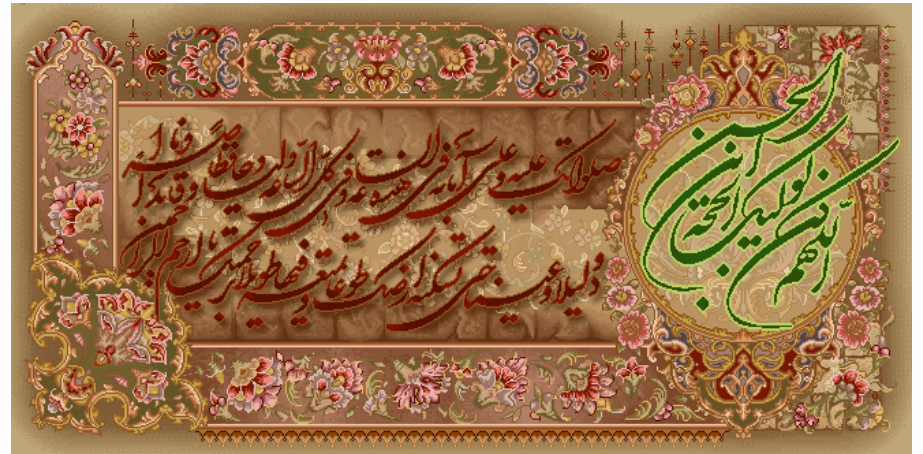 اللهم کن لولیک الحجة ابن الحسن
صلواتک علیه و علی آبائه فی هذه الساعة و فی کل الساعة ولیا و حافظا و قائدا و ناصرا
و دلیلا و عینا حتی تسکنه ارضک طوعا و تمتعه فیها طویلا برحمتک یا ارحم الراحمین